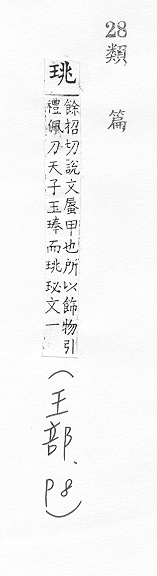 28
類篇
珧
餘招切說文蜃甲也所以飾物引
禮佩刀天子玉琫而珧珌文一
(玉部、P8)